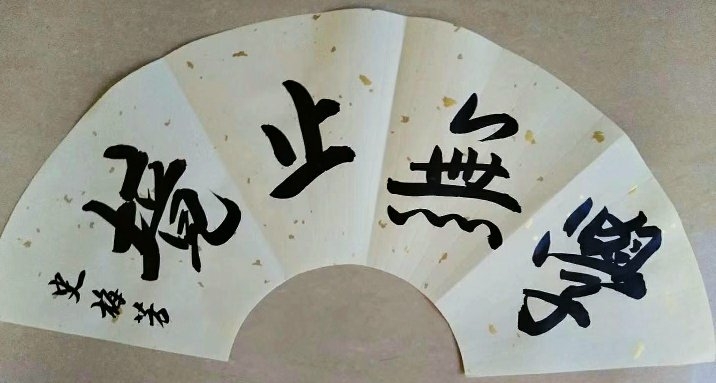 學無止境
史梅芳